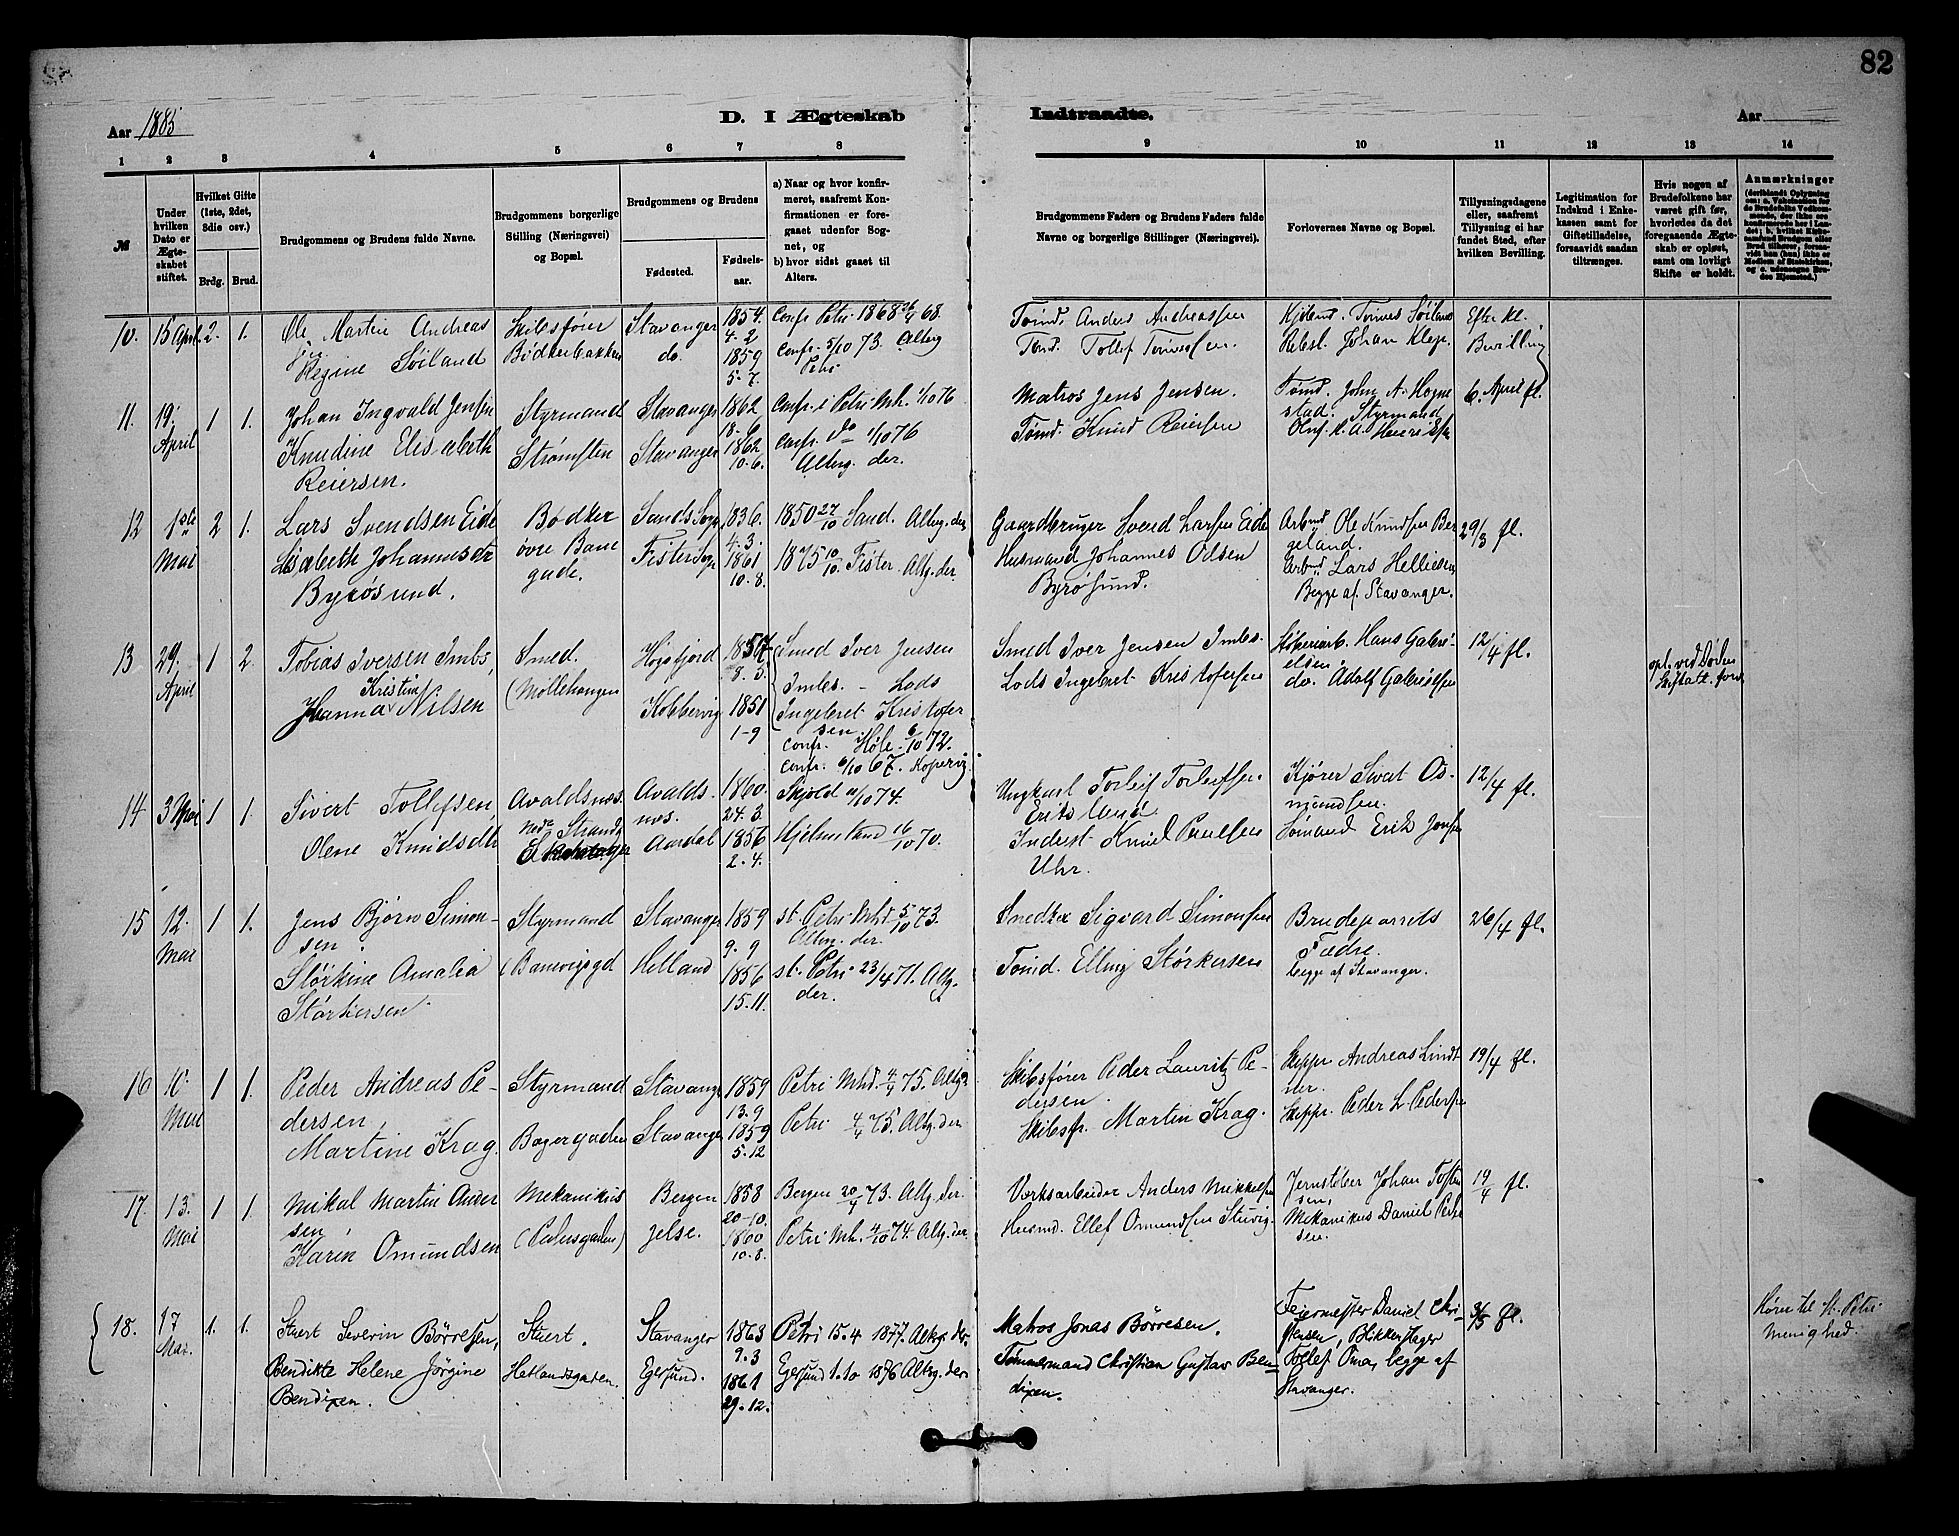 82
Aar 1885
D. I Ægteskab Indtraadte.
Aar
1 2 3 4 5 6 7 8 9 10 11 12 13 14
№
Under hvilken Dato er Ægteskabet stiftet.
Hvilket Gifte (1ste, 2det, 3die osv.)
Brdg. Brud.
Brudgommens og Brudens fulde Navne.
Brudgommens borgerlige Stilling (Næringsvei) og Bopæl.
Brudgommens og Brudens
Fødested. Fødselsaar.
a) Naar og hvor konfirmeret, saafremt Konfirmationen er foregaaet udenfor Sognet, og
b) hvor sidst gaaet til Alters.
Brudgommens Faders og Brudens Faders fulde Navne og borgerlige Stillinger (Næringsvei).
Forlovernes Navne og Bopæl.
Tillysningsdagene eller, saafremt Tillysning ei har fundet Sted, efter hvilken Bevilling.
Legitimation for Indskud i Enkekassen samt for Giftetilladelse, forsaavidt saadan tiltrænges.
Hvis nogen af Brudefolkene har været gift før, hvorledes da det foregaaende Ægteskab er opløst, samt om lovligt Skifte er holdt.
Anmærkninger
10. 15 April 2. 1.
Ole Martin Andreas
Regine Søiland
Skibsfører
Bødkerbakken
Stavanger
do.
1854.
4.2
1859
5.7.
Conf. Petri 1868 68.
Conf. 5/10 73. Alterg
Petri
Tømd. Anders Andreassen
Tømd. Tollef Tønnesen.
Tønnes Søiland
Johan Klep.
Efter Kl.
Bevilling
11. 19. April 1 1.
Johan Ingvald Jensen
Knudine Elisabeth
Reiersen.
Styrmand
Strømsten
Stavanger
Stavanger
1862
18.6
1862
10.6.
Conf. i Petri Mh. 1/10 76
Conf. do 1/10 76
Alterg. der.
Matros Jens Jensen.
Tømd. Knud Reiersen
Tømd. John A. Hognestad. Styrmand
6. April fl.
12 1ste Mai 2 1.
Lars Svendsen Eide
Elisabeth Johannesdtr
Byrøsund.
Bødker
øvre Banegade.
Sands Sogn
Fister Sogn
1836.
4.3.
1861
10.8.
1850 27/10 Sand. Altg. der
1875 10/10 Fister. Altg. der.
Gaardbruger Svend Larsen Eide
Husmand Johannes Olsen
Byrøsund.
Arbmd Ole Knudsen Bergeland.
Arbmd Lars Helliesen
Begge af Stavanger.
29/3 fl.
13 29. April 1 2.
Tobias Iversen Imbs,
Johanna Kristine Nilsen
Smed.
(Møllehaugen
Høgsfjord
Kobbervig
1857
8.5.
1851
1-9
Smed Iver Jensen
Imbs. - Lods
Ingebret Kristofersen
Conf. Høle 6/10 72.
Conf. 6/10 67. Kopervig
Smed Iver Jensen Imbs.
Lods Ingebret Kristofersen
Hans Gabrielsen.
do. Adolf Gabrielsen
12/4 fl.
opl. ved Døden
Skifteatt. forev.
14 3 Mai 1 1.
Sivert Tollefsen,
Olene Knudsdtr
Avaldsnes.
nedre Strandg
Avaldsnes.
Aardal
1860.
24.3.
1856
2.4.
Skjold 11/10 74.
Hjelmeland 16/10 70.
Ungkarl Torleif Torleifsen
Eriksland
Inderst Knud Paulsen
Uhr.
Kjører Sivert Osmundsen.
Sømand Erik Jonsen
12/4 fl.
15 12. Mai 1 1.
Jens Bjørn Simonsen.
Størkine Amalia
Størkersen.
Styrmand
(Banevigsgd
Stavanger
Helland
1859
9.9
1856
15.11.
st. Petri Mhd. 5/10 73.
Alterg. der.
st. Petri 23/4 71. Altg.
der.
Snedker Sigvard Simonsen
Tømd. Elling Størkersen
Brudeparrets
Fædre.
begge af Stavanger.
26/4 fl.
16 10. Mai 1 1.
Peder Andreas Pedersen,
Martine Krag.
Styrmand
Bagergaden
Stavanger
Stavanger
1859
13.9
1859
5.12
Petri Mhd. 4/4 75. Altg.
Petri 4/4 75. Altg. der
Skibsfører Peder Lauritz Pedersen.
Skibsfr. Martin Krag.
Skippr Andreas Lindtner.
Skippr. Peder L. Pedersen
19/4 fl.
17. 13. Mai 1 1.
Mikal Martin Andersen,
Karin Omundsen
Mekanikus
(Pedersgaden)
Bergen
Jelse.
1858
20-10.
1860
10.8.
Bergen 20/4 73. Altg. der.
Petri Mh. 4/10 74. Altg. der.
Værksarbeider Anders Mikkelsen
Husmd. Ellef Omundsen Stuvig.
Jernstøber Johan Tostensen,
Mekanikus Daniel Pedersen.
19/4 fl.
18. 17 Mai. 1. 1.
Stuert Severin Börresen,
Bendikte Helene Jörgine
Bendixen.
Stuert.
Hetlandsgaten.
Stavanger
Egersund.
1863
9.3
1861
29.12.
Petri 15.4 1877. Altrg. der.
Egersund 1.10 1876 Altrg. der.
Matros Jonas Börresen.
Tømmermand Christian Gustav Bendixen.
Feiermester Daniel Christensen, Blikkenslager
Tollef Oma, begge af
Stavanger.
3/5 fl.
Hører til St. Petri
menighed.